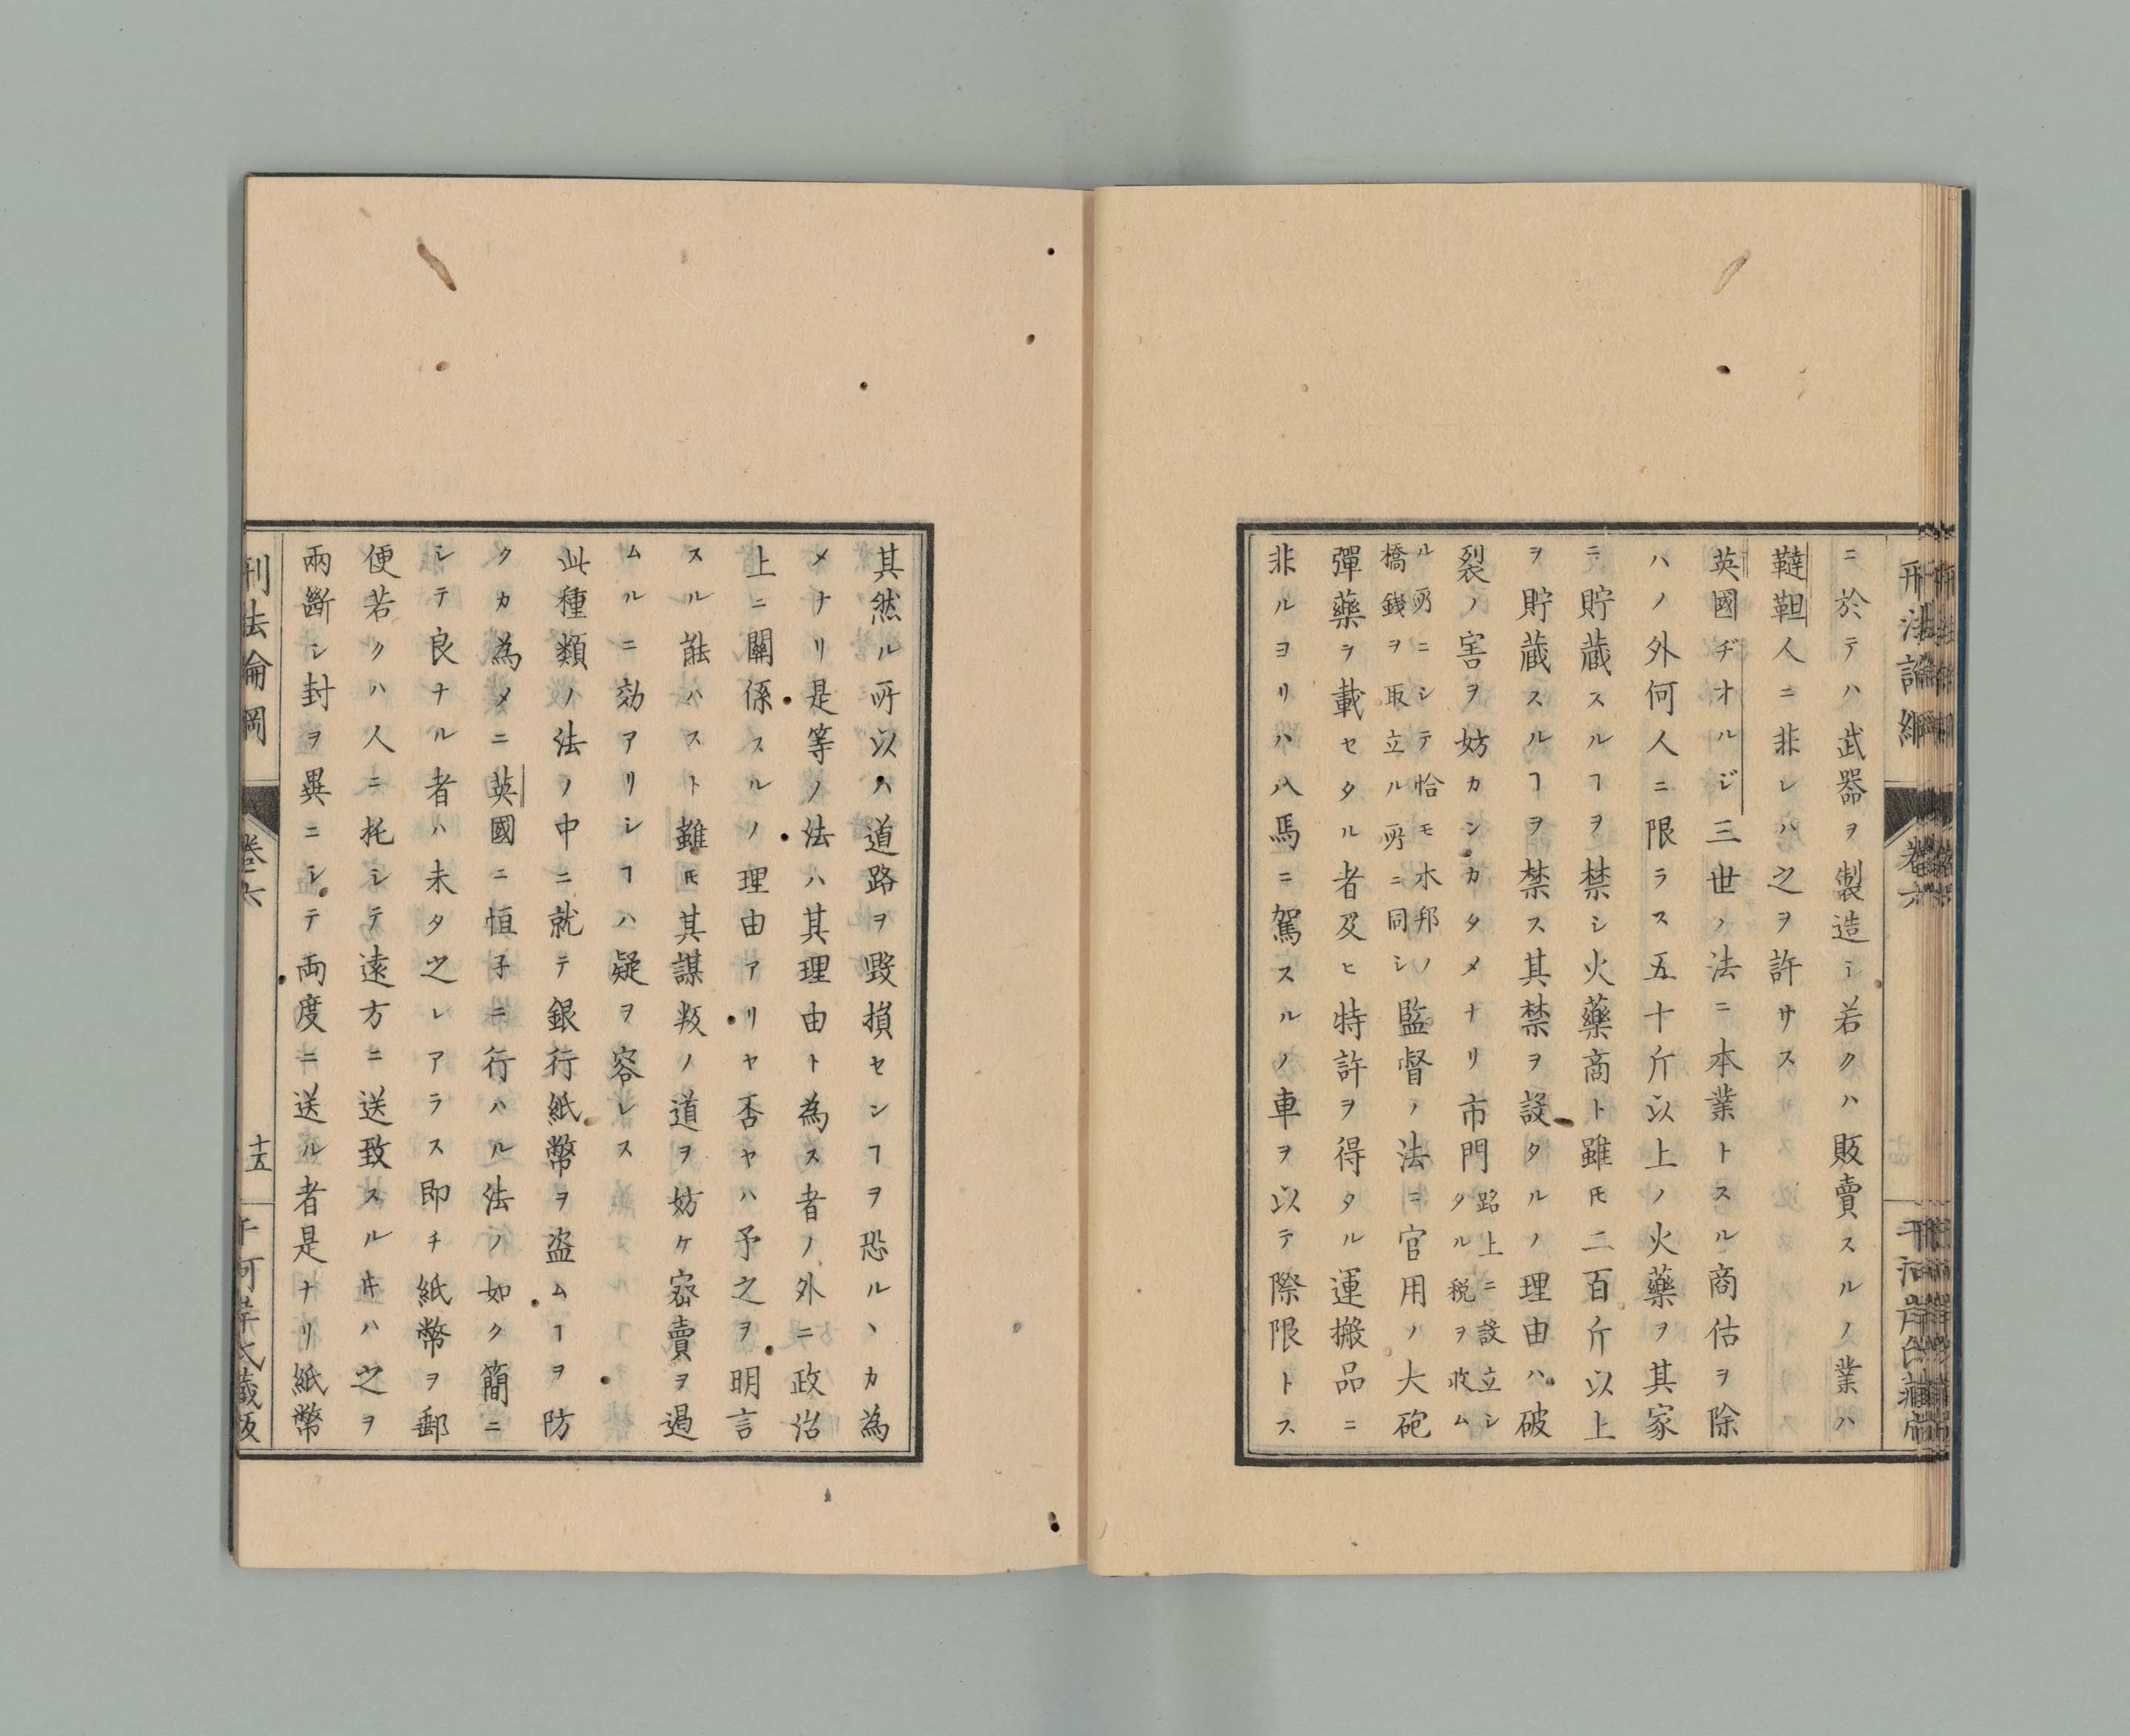 ニ於テハ武器ヲ製造シ若クハ販賣スルノ業ハ
韃靼人ニ非レハ之ヲ許サス
英國ヂオルジ三世ノ法ニ本業トスル商估ヲ除
ハノ外何人ニ限ラス五十斤以上ノ火藥ヲ其家
ニ貯蔵スルヿヲ禁シ火藥商ト雖𪜈二百斤以上
ヲ貯蔵スルヿヲ禁ス其禁ヲ設タルノ理由ハ破
裂ノ害ヲ妨カンカタメナリ市門
路上ニ設立シ
タル税ヲ收ム
ル所ニシテ恰モ本邦ノ
橋錢ヲ取立ル所ニ同シ
監督ノ法ニ官用ノ大砲
彈藥ヲ載セタル者及ヒ特許ヲ得タル運搬品ニ
非ルヨリハ八馬ニ駕スルノ車ヲ以テ際限トス
其然ル所以ハ道路ヲ毀損センヿヲ恐ルヽカ為
メナリ是等ノ法ハ其理由ト為ス者ノ外ニ政治
上ニ關係スルノ理由アリヤ否ヤハ予之ヲ明言
スル能ハスト雖𪜈其謀叛ノ道ヲ妨ケ密賣ヲ遏
ムルニ効アリシヿハ疑ヲ容レス
此種類ノ法ノ中ニ就テ銀行紙幣ヲ盗ムヿヲ防
クカ為メニ英國ニ恒子ニ行ハルル法ノ如ク簡ニ
シテ良ナル者ハ未タ之レアラス即チ紙幣ヲ郵
便若クハ人ニ托シテ遠方ニ送致スル𪜈ハ之ヲ
兩斷シ封ヲ異ニシテ両度ニ送ル者是ナリ紙幣
刑法論綱
卷六
十五